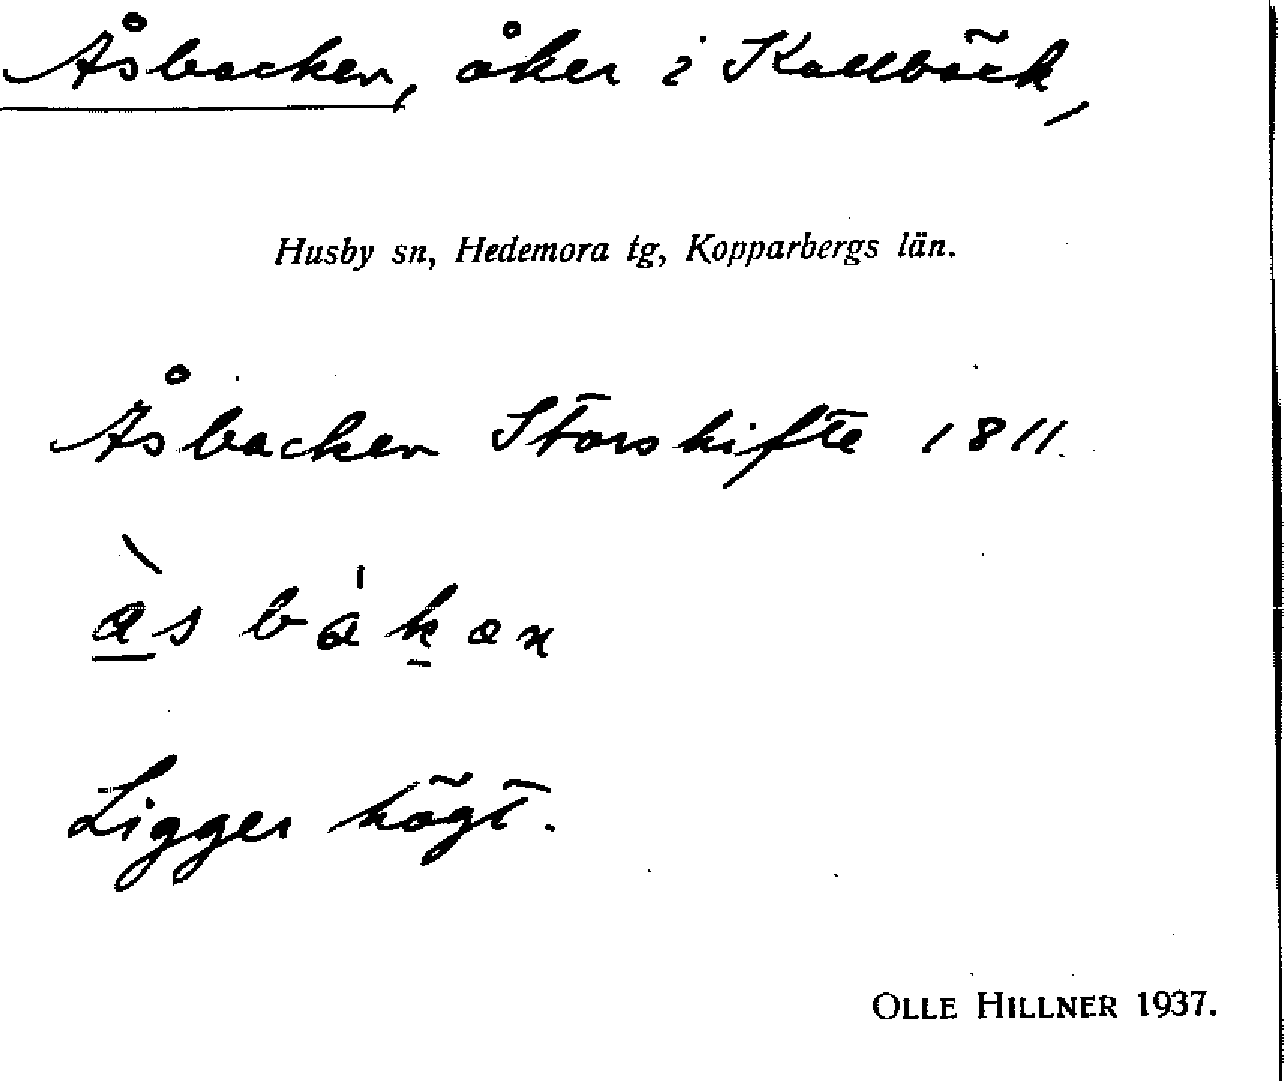 Åsbacken, åker i Kallbäck,
Husby sn, Hedemora tg, Kopparbergs län.
Åsbacken Storskifte 1811.
Ligger högt.
OLLE HILLNER 1937.